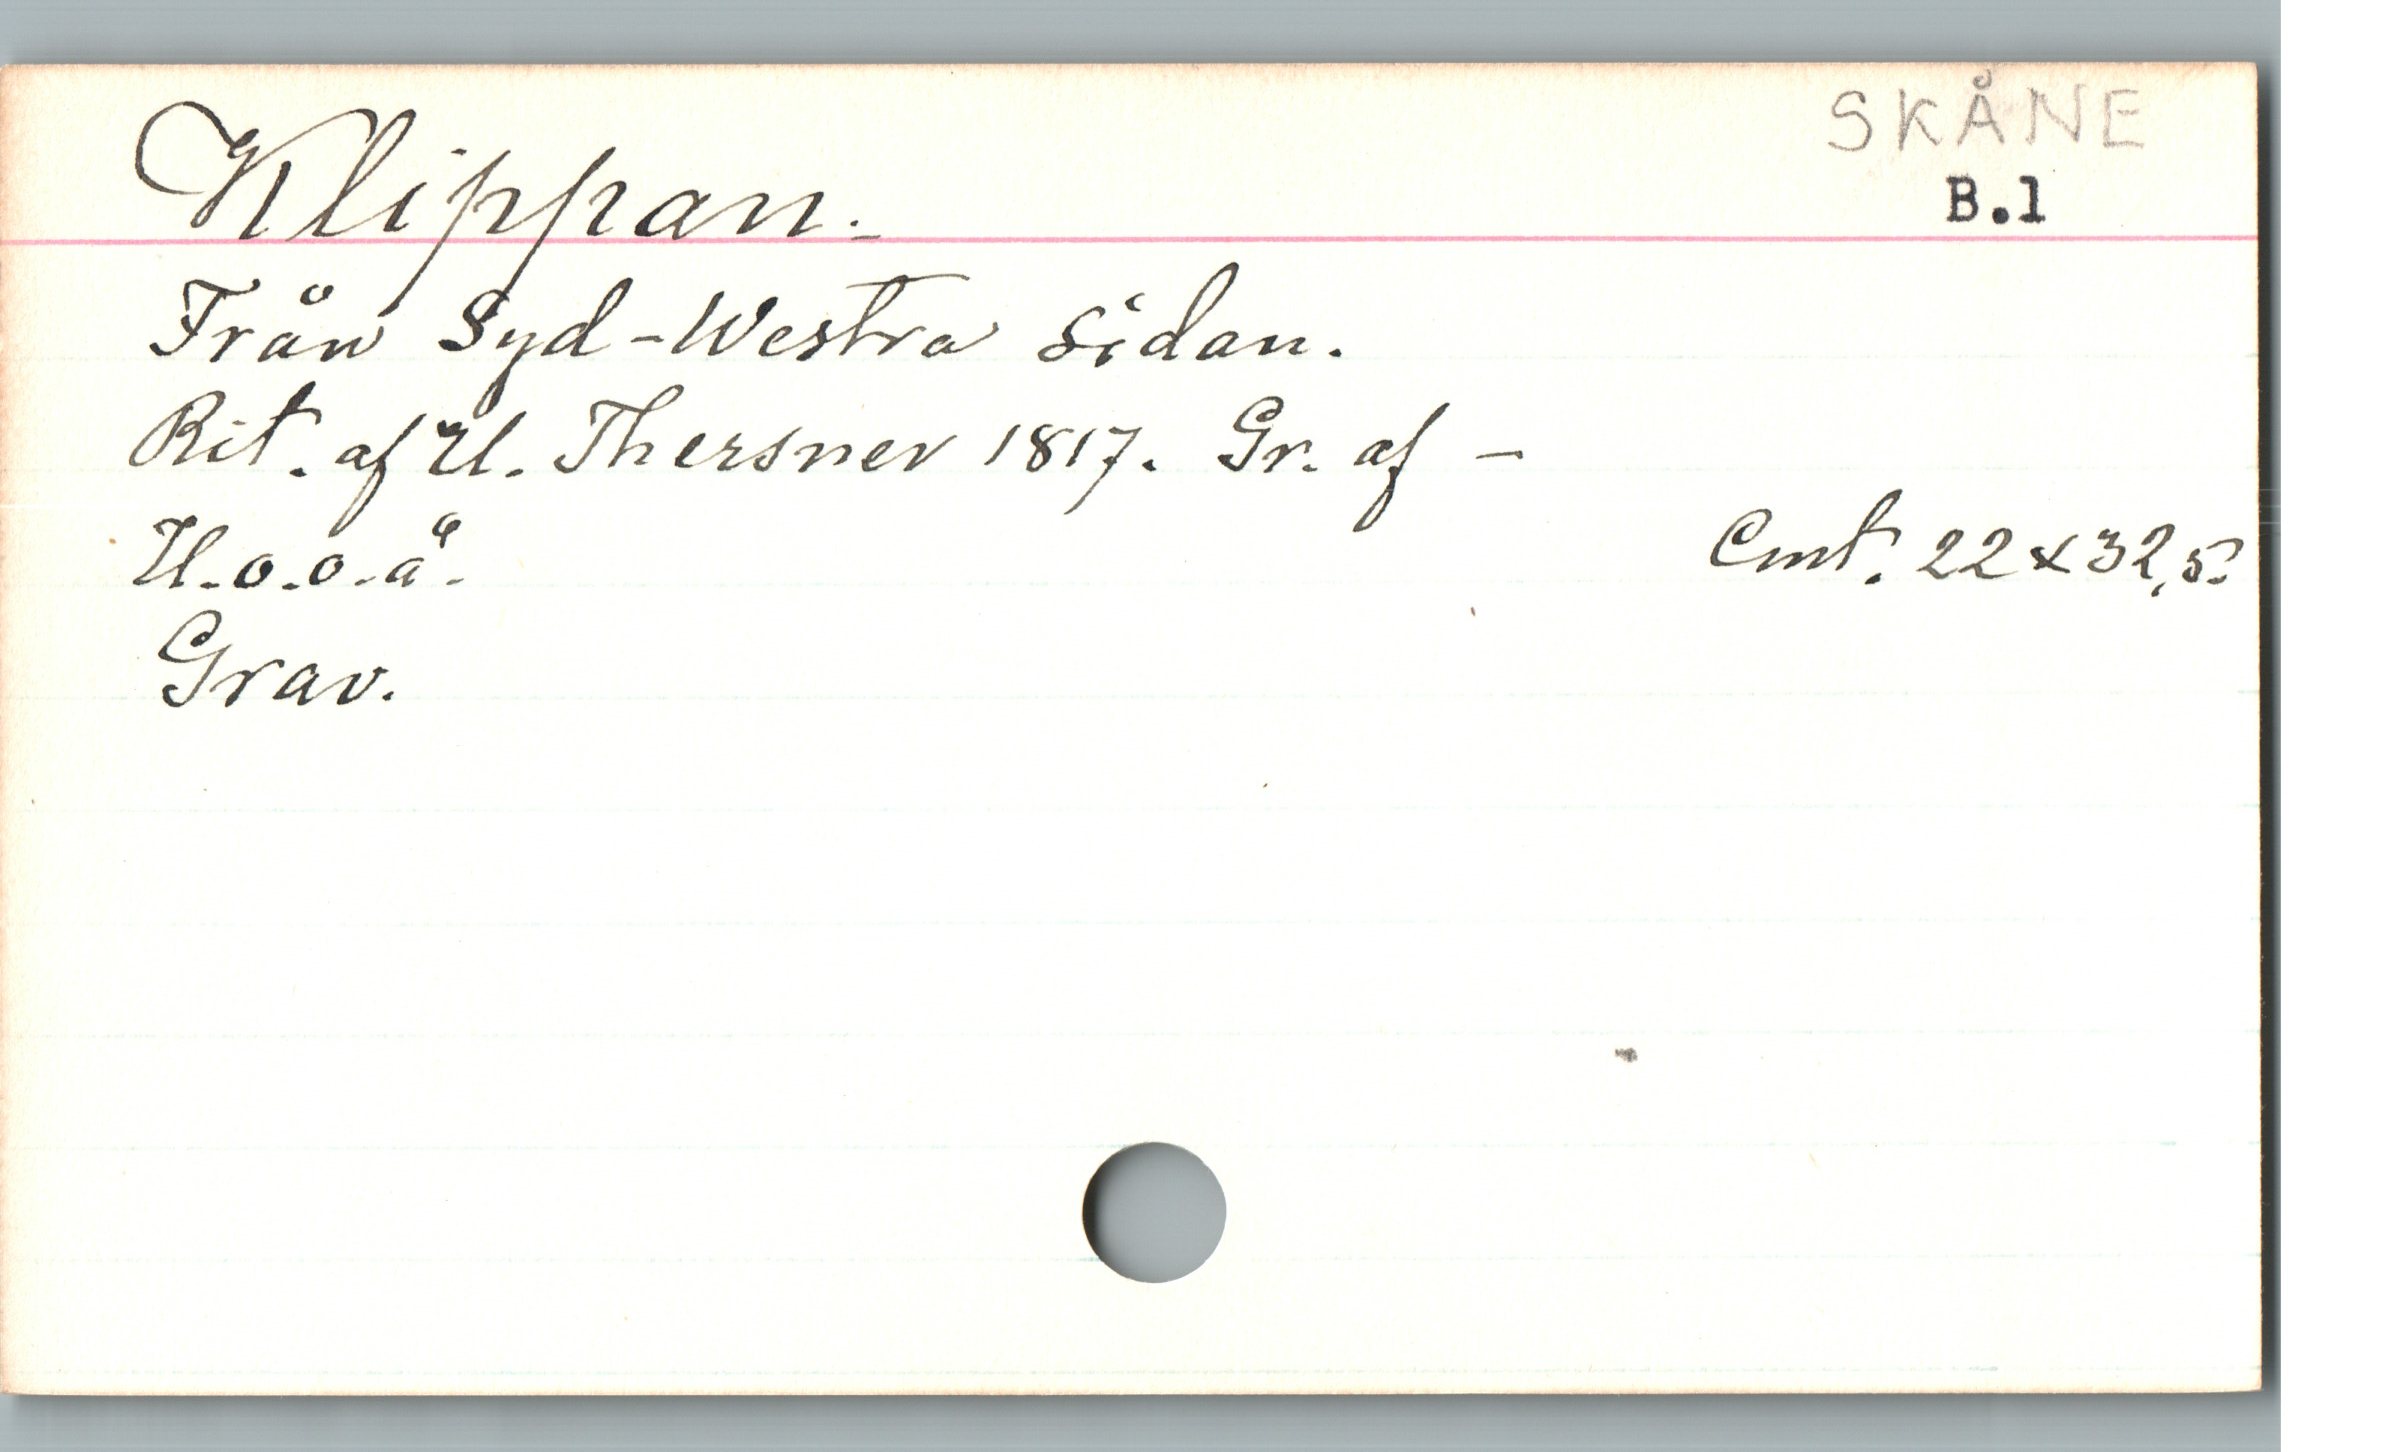 Klippan.
SKÅNE
B.1
Från Syd-Westra sidan.
Rit. af U. Thersner 1817. Gr. af –
U.o.o.ä.
Cmt. 22 x 32,5.
Grav.